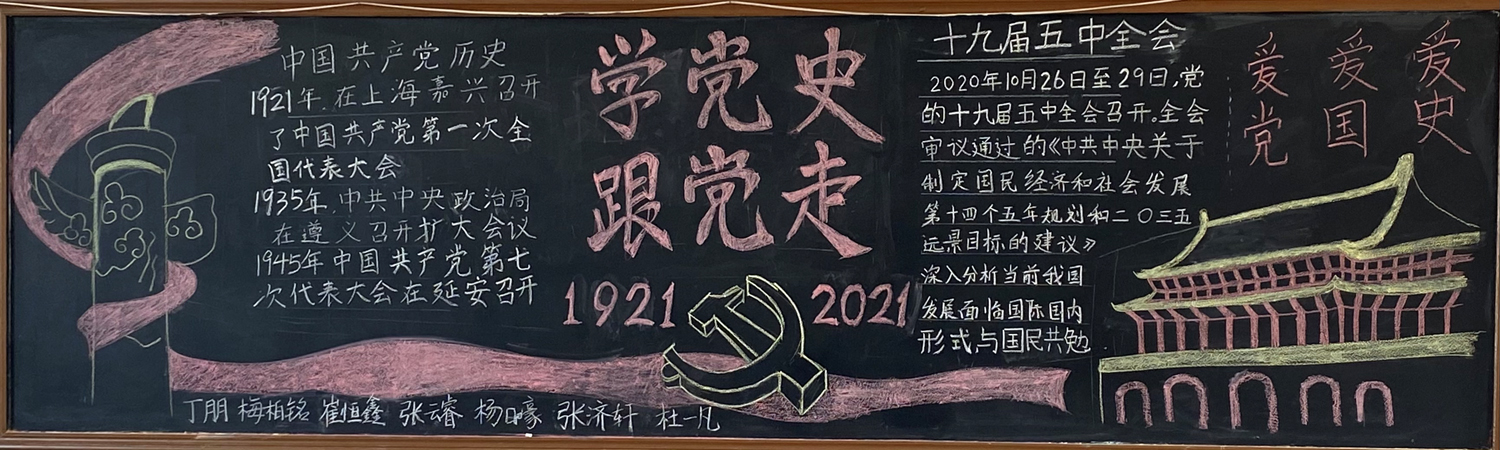 中国共产党历史
1921年,在上海嘉兴召开
了中国共产党第一次全
国代表大会
1935年,中共中央政治局
在遵义召开扩大会议
1945年中国共产党第七
次代表大会在延安召开
学党史
跟党走
1921 2021
十九届五中全会
2020年10月26日至29日,党
的十九届五中全会召开。全会
审议通过的《中共中央关于
制定国民经济和社会发展
第十四个五年规划和二〇三五
远景目标的建议》
深入分析当前我国
发展面临国际国内
形式与国民共勉
爱党
爱国
爱史
丁朋 梅柏铭 崔恒鑫 张云睿 张济轩 杜一凡